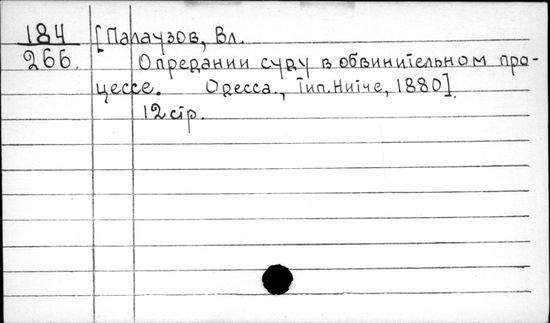 184 [Палаузов, Вл.
266. Опредании суду в обвинительном про-
цессе. Одесса., Тип. Нитче, 1880].
12 стр.